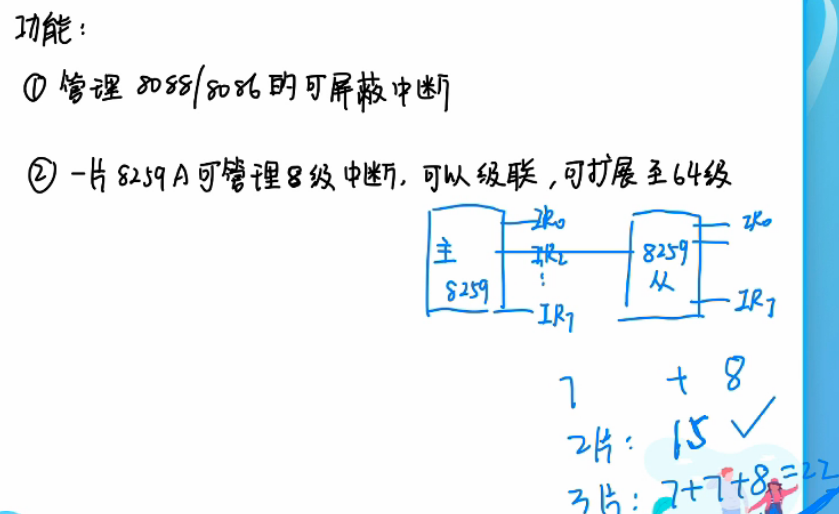 功能:
① 管理 8088/8086的可屏蔽中断
② 一片8259A可管理8级中断,可以级联,可扩展至64级
主 8259
IR0
IR2
⋮
IR7
8259 从
IR0
IR7
7 + 8
2片: 15 ✓
3片: 7+7+8=22